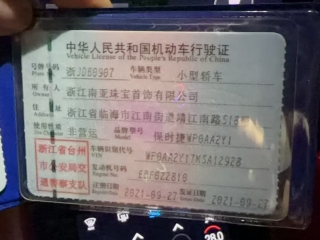 中华人民共和国机动车行驶证
Vehicle License of the People's Republic of China
号牌号码 浙JD88967 车辆类型 小型轿车
Plate No. Vehicle Type
所有人 浙江南亚珠宝首饰有限公司
Owner
住址 浙江省临海市江南街道靖江南路
Address
使用性质 非营运 品牌型号 保时捷WP0AA2Y1
浙江省台州 车辆识别代号 WP0AA2Y1TKSA12928
VIN
市公安局交 发动机号码
Engine No.
通警察支队 注册日期 2021-09-27 发证日期 2021-09-27